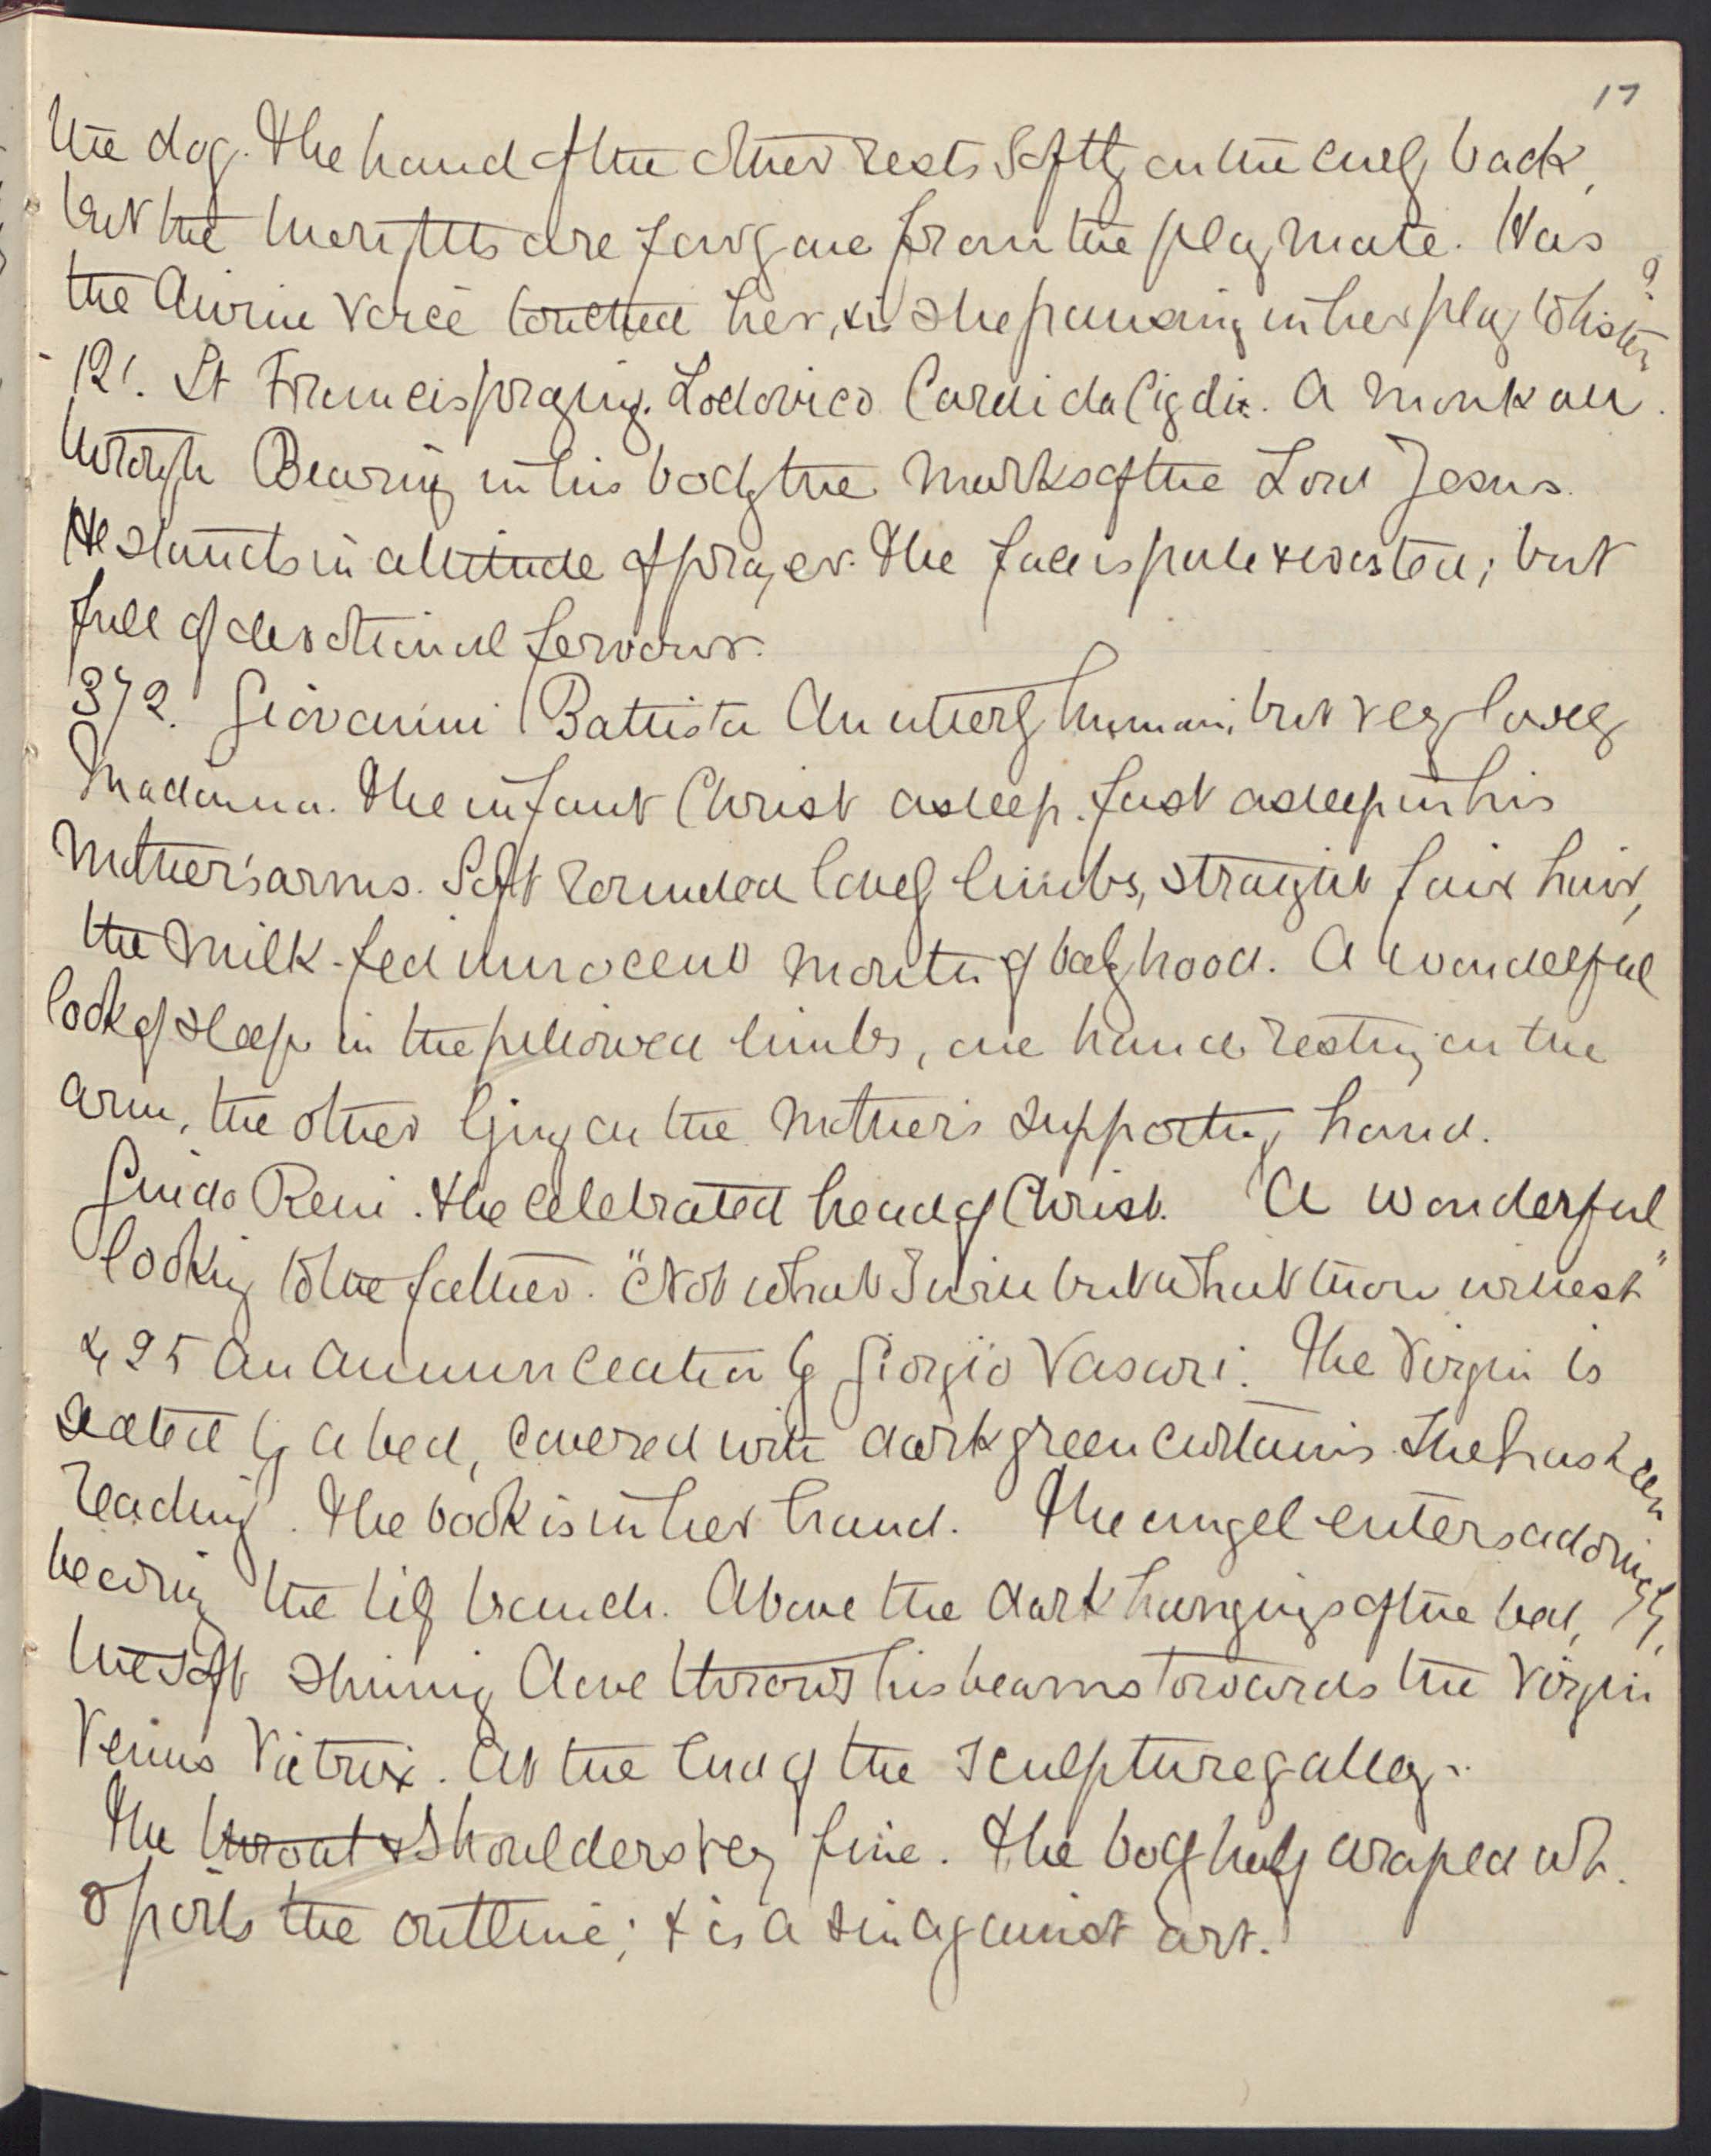 17
the dog. The hand of the other rests softly on the curly back,
but the thoughts are far gone from the play mate. Has
the divine voice touched her, & is she pausing in her play to listen?
121. St Francis praying. Lodovico Cardi da Cigoli. A monk all
through Bearing in his body the marks of the Lord Jesus.
He stands in attitude of prayer. The face is pale & wasted; but
full of devotional fervour.
372. Giovanni Battista An utterly human, but very lovely
Madonna. The infant Christ asleep. fast asleep in his
Mother's arms. Soft rounded lovely limbs, straight fair hair,
the milk-fed innocent mouth of babyhood. A wonderful
look of sleep in the pillowed limbs, one hand resting on the
arm, the other lying on the Mother's supporting hand.
Guido Reni. The celebrated head of Christ. A wonderful
looking to the father. "Not what I will but what thou willest"
425 An Annunciation by Giorgio Vasari. The Virgin is
seated by a bed, covered with dark green curtains. She has been
reading. The book is in her hand. The angel enters adoringly,
bearing the lily branch. Above the dark hangings of the bed,
the soft shining dove throws his beams towards the Virgin
Venus Victrix. At the End of the sculpture gallery.
The throat & shoulders very fine. The body half draped wh.
spoils the outline; & is a sin against art.